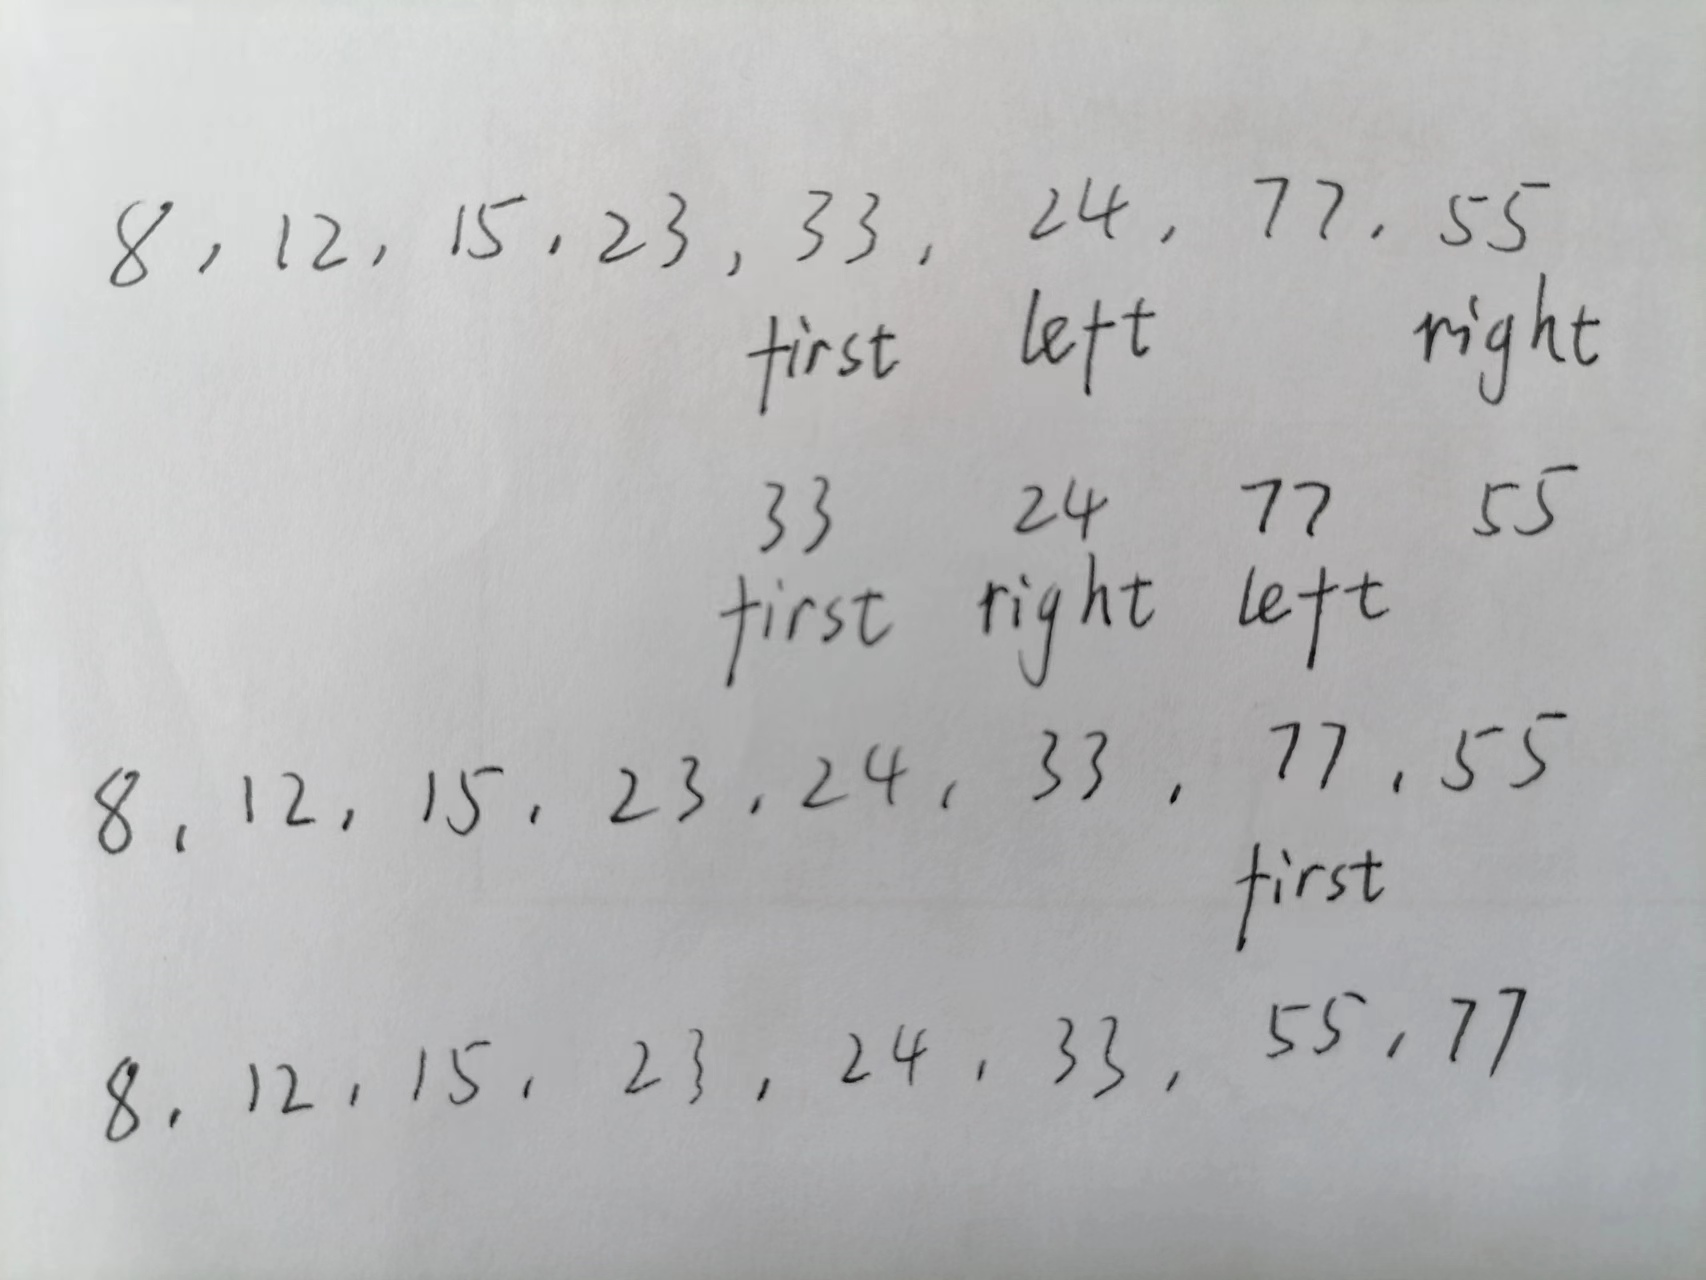 8, 12, 15, 23, 33, 24, 77, 55
first left right
33 24 77 55
first right left
8, 12, 15, 23, 24, 33, 77, 55
first
8, 12, 15, 23, 24, 33, 55, 77